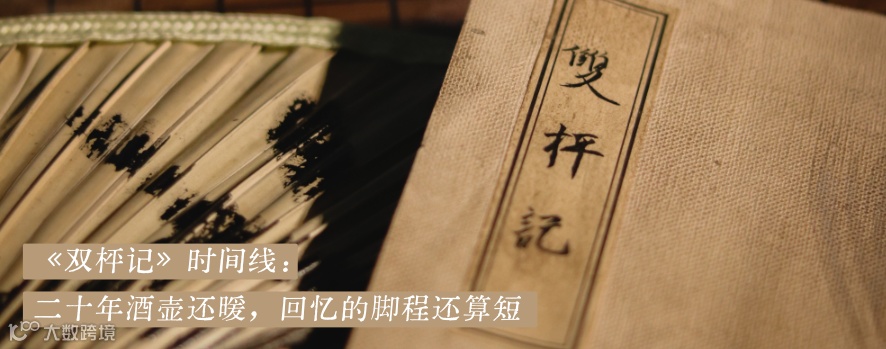 雙枰記
《双枰记》时间线：
二十年酒壶还暖，回忆的脚程还算短
大数跨境